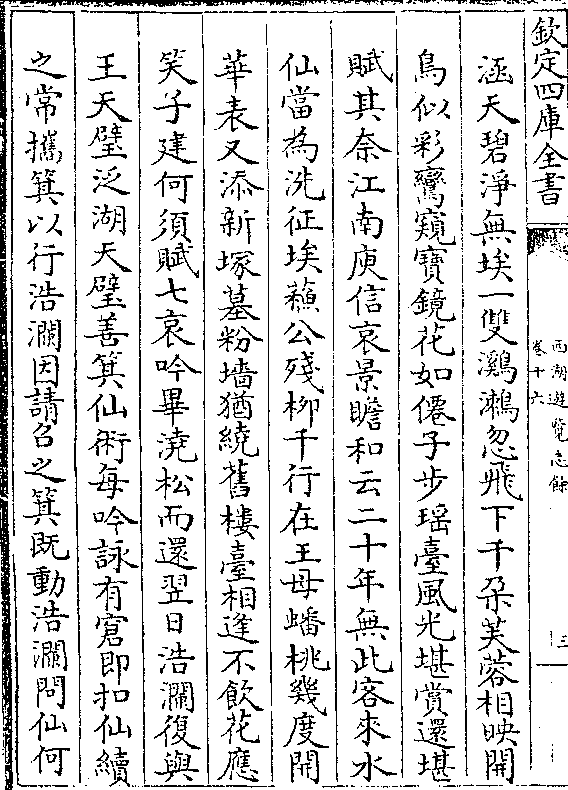 欽定四庫全書
西湖遊覽志餘
卷十六
三
涵天碧淨無埃一雙鸂鶒忽飛下千朶芙蓉相映開
鳥似彩鸞窺寶鏡花如僊子步瑶臺風光堪賞還堪
賦其奈江南庾信哀景瞻和云二十年無此客來水
仙當為洗征埃蘓公殘柳千行在王母蟠桃幾度開
華表又添新塚墓粉墻猶繞舊樓臺相逢不飲花應
笑子建何須賦七哀吟畢澆松而還翌日浩瀾復與
王天璧泛湖天璧善箕仙術每吟詠有窘即扣仙續
之常攜箕以行浩瀾因請召之箕既動浩瀾問仙何